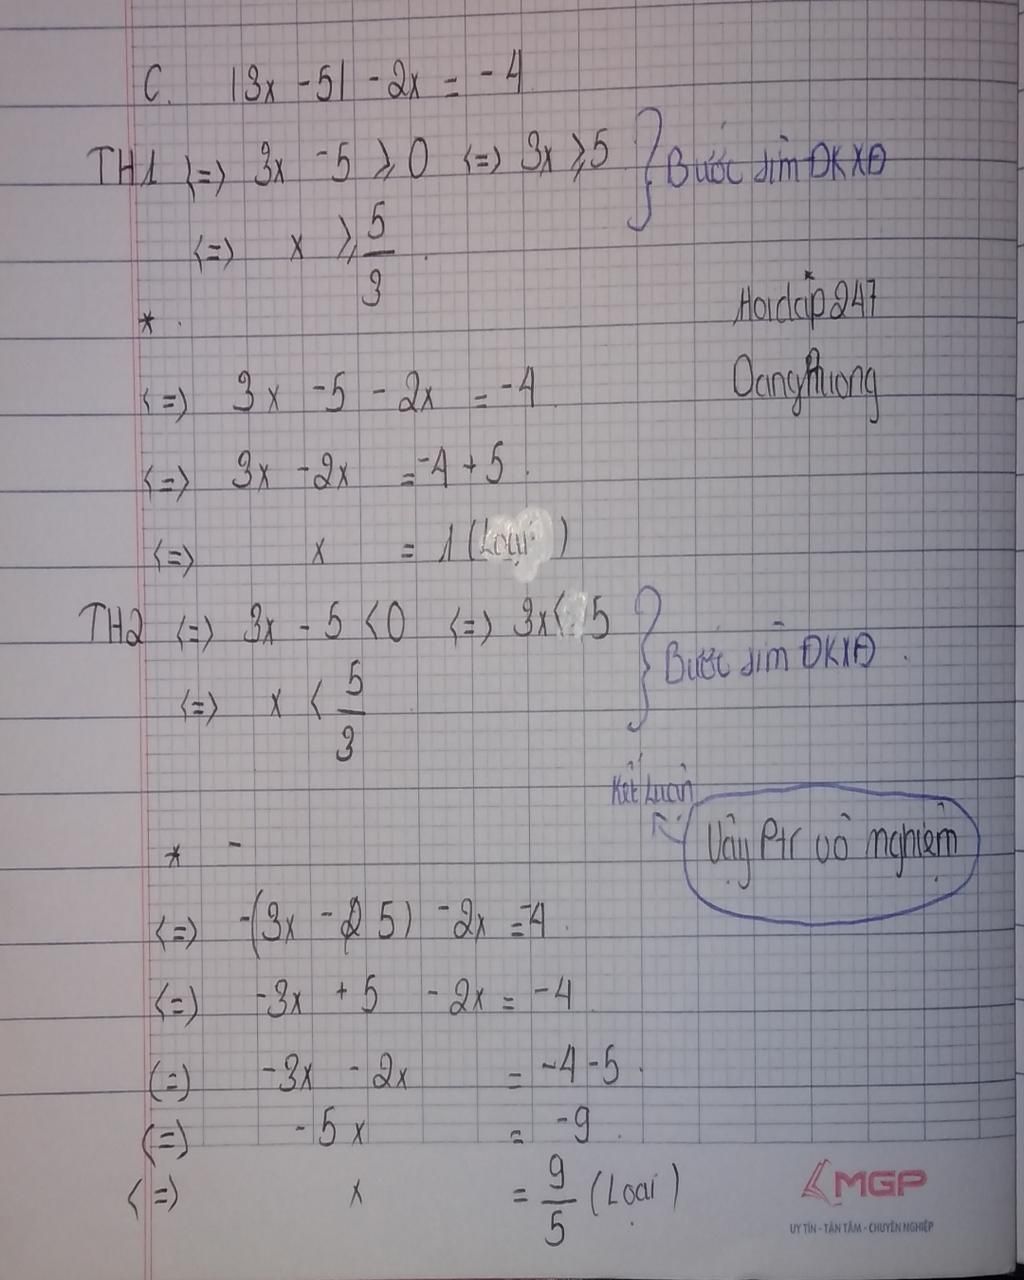 C. |3x - 5| - 2x = -4
TH1 <=> 3x - 5 ⩾ 0 <=> 3x ⩾ 5 } Bước tìm ĐKXĐ
<=> x ⩾ 5/3
*
Hoidap247
<=> 3x - 5 - 2x = -4
DangPhuong
<=> 3x - 2x = -4 + 5
<=> x = 1 (Loại)
TH2 <=> 3x - 5 < 0 <=> 3x < 5 } Bước tìm ĐKXĐ
<=> x < 5/3
Kết Luận
Vậy Ptr vô nghiệm
* -
<=> -(3x - 5) - 2x = -4
<=> -3x + 5 - 2x = -4
<=> -3x - 2x = -4 - 5
<=> -5x = -9
<=> x = 9/5 (Loại)
MGP
UY TÍN - TẬN TÂM - CHUYÊN NGHIỆP